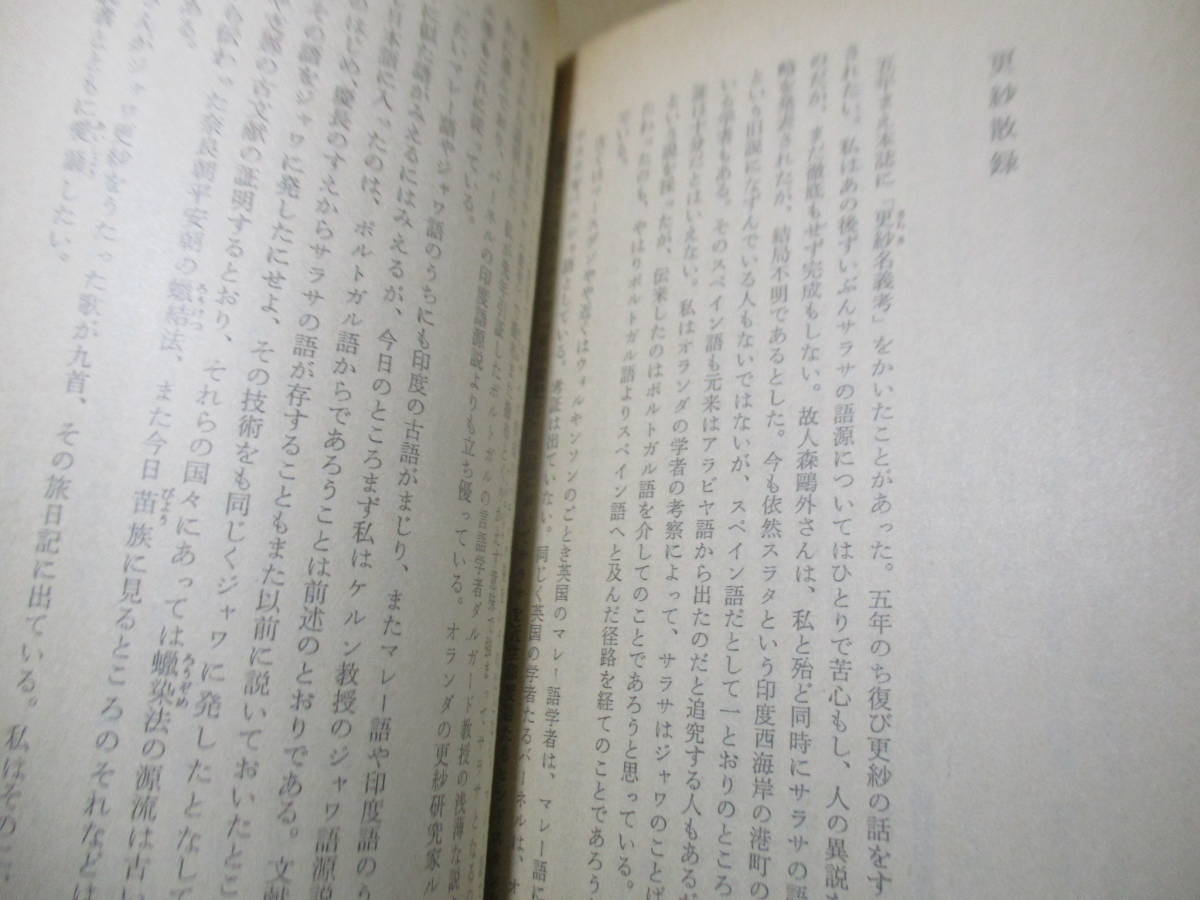 更紗散録
五年まえ本誌に「更紗名義考」をかいたことがあった。五年のち復び更紗の話をす
されたい。私はあの後ずいぶんサラサの語源についてはひとりで苦心もし、人の異説
のだが、まだ徹底もせず完成もしない。故人森鷗外さんは、私と殆ど同時にサラサの語
を発表されたが、結局不明であるとした。今も依然スラタという印度西海岸の港町の
という旧説になずんでいる人もないではないが、スペイン語だとして一とおりのところ
いる学者もある。そのスペイン語も元来はアラビヤ語から出たのだと追究する人もある
十分だとはいえない。私はオランダの学者の考察によって、サラサはジャワのことば
という説を採ったが、伝来したのはポルトガル語を介してのことであろうと思っている。
わったのも、やはりポルトガル語よりスペイン語へと及んだ径路を経てのことであろう
ている。
やや近くはウィルキンソンのごとき英国のマレー語学者は、マレー語に
としている。考証は出ていない。同じく英国の学者たるバーネルは、オ
ポルトガルの言語学者ダルガード教授の
バーネルの印度語源説よりも立ち優っている。オランダの更紗研究家ル
もこれに従っている。
たいマレー語やジャワ語のうちにも印度の古語がまじり、またマレー語や印度語のう
に似た語がみえるにはみえるが、今日のところまず私はケルン教授のジャワ語源説
日本語に入ったのは、ポルトガル語からであろうことは前述のとおりである。文献
はじめ、慶長のすえからサラサの語が存することもまた以前に説いておいたとこ
その語をジャワに発したにせよ、その技術をも同じくジャワに発したとなして
の古文献の証明するとおり、それらの国々にあっては蠟染法の源流は古い
伝わった奈良朝平安朝の蠟結法、また今日苗族に見るところのそれなどは
ある。
ジャワ更紗をうたった歌が九首、その旅日記に出ている。私はその
とともに愛誦したい。